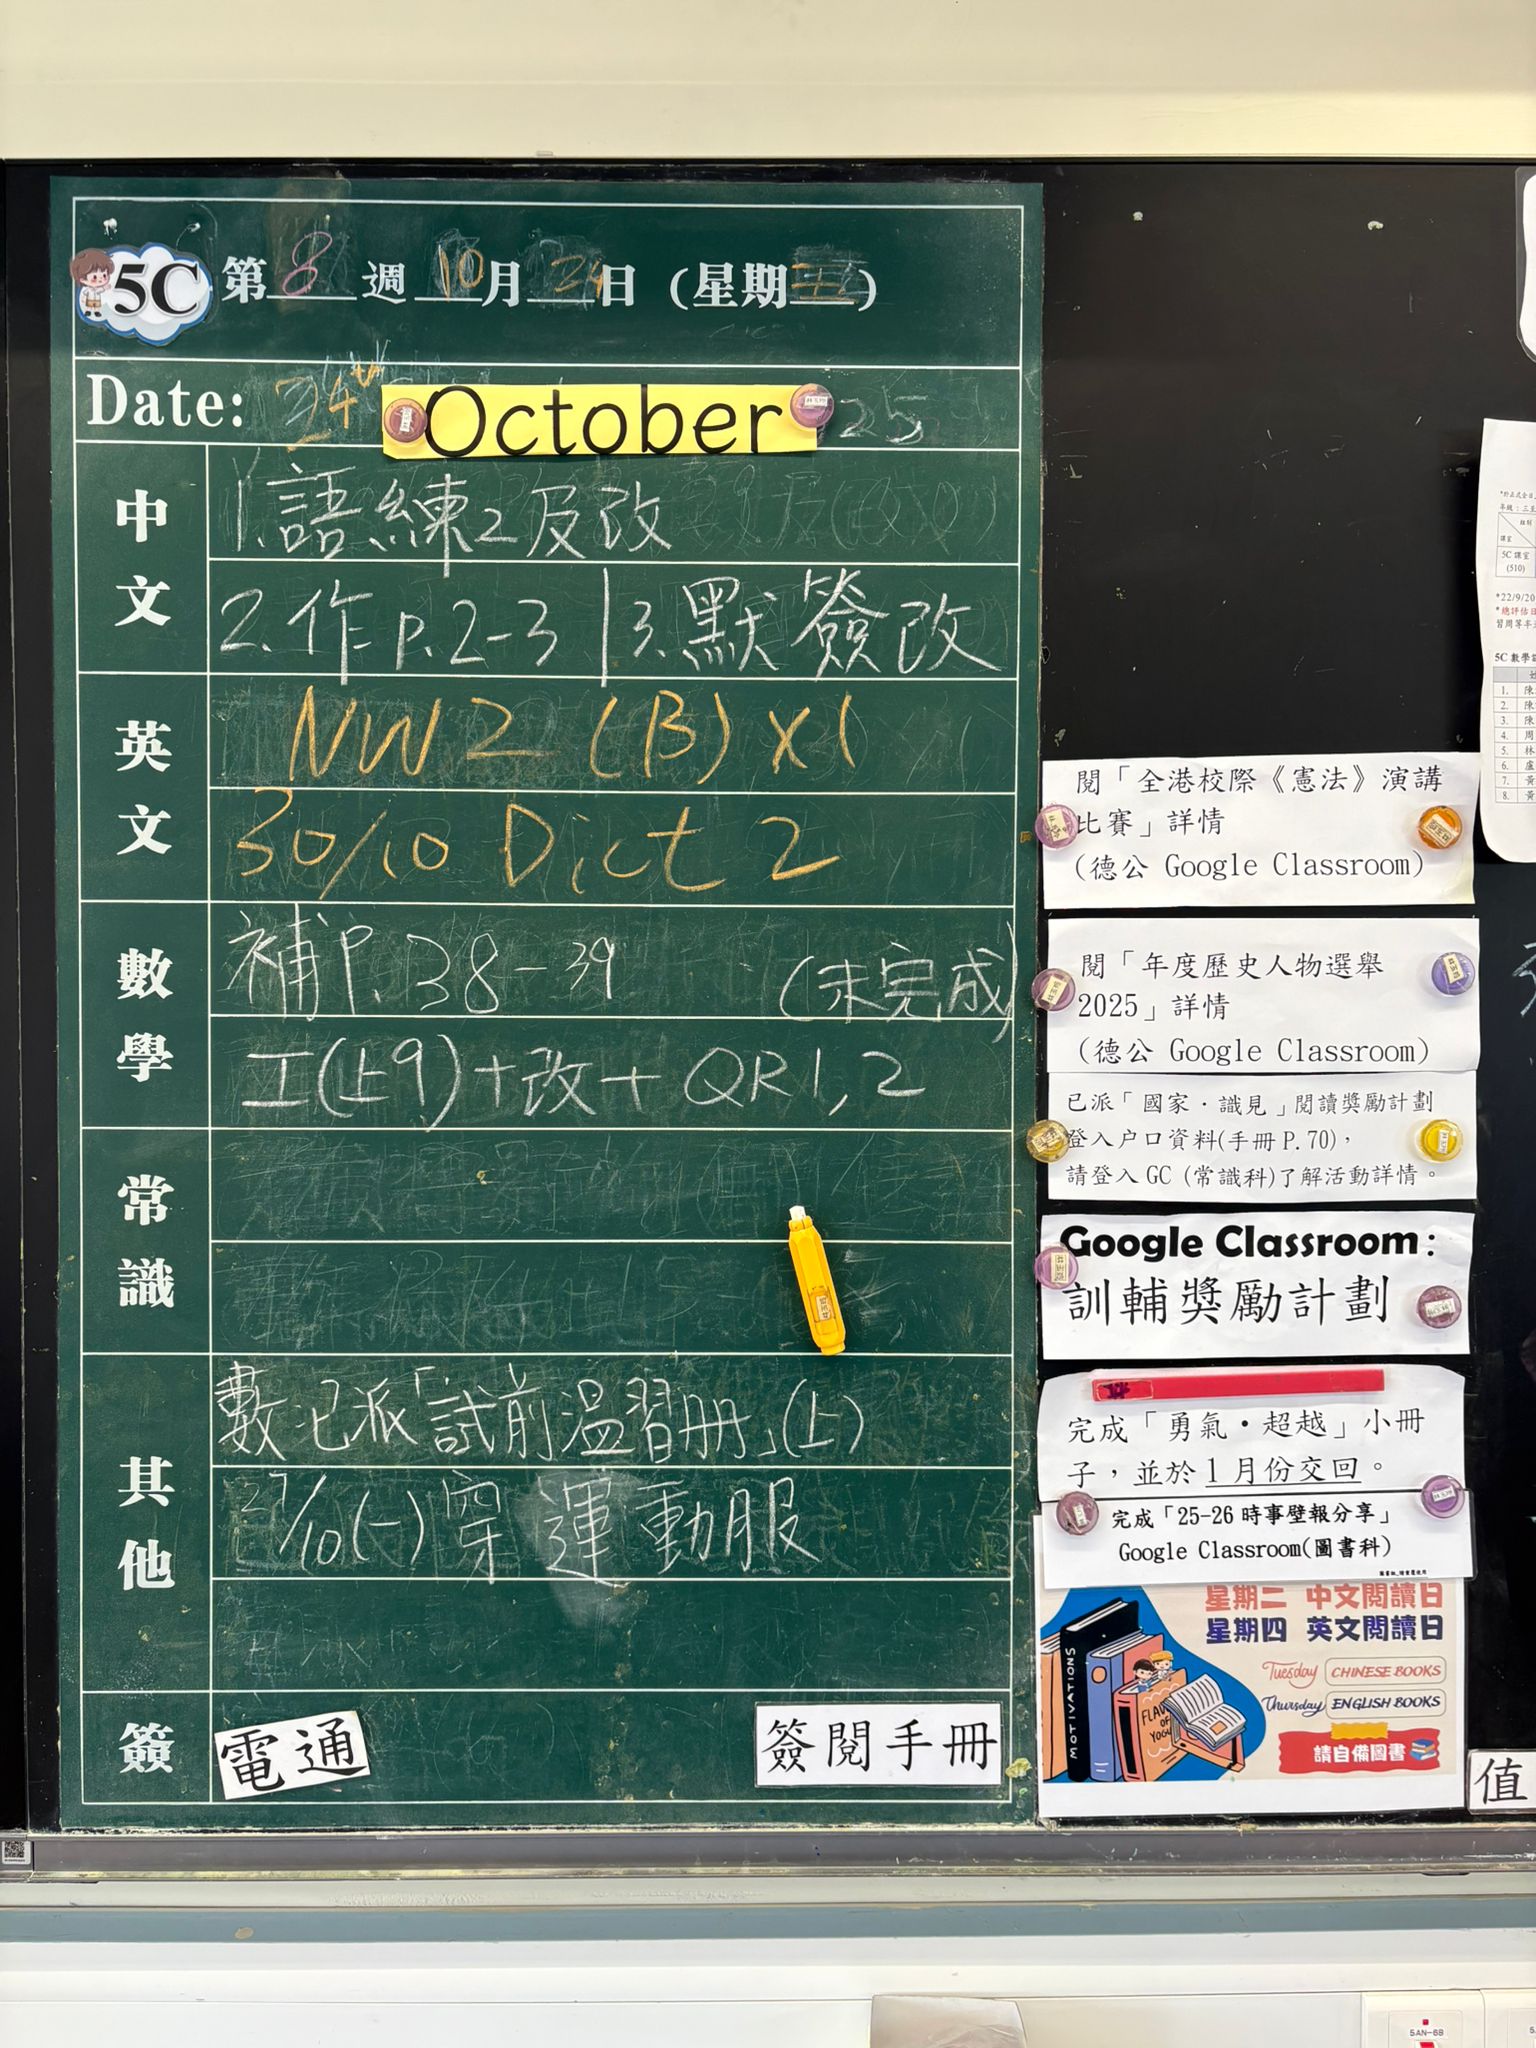 5C 第8週10月24日(星期五)
Date: 24th October 25
中文
1.語練2及改
2.作P.2-3|3.默簽改
英文
NW2 (B)x1
30/10 Dict 2
數學
補P.38-39 (未完成)
工(上9)+改+QR1,2
常識
其他
數已派「試前溫習冊」(上)
27/10(一)穿運動服
簽
電通
簽閱手冊
閱「全港校際《憲法》演講
比賽」詳情
(德公 Google Classroom)
閱「年度歷史人物選舉
2025」詳情
(德公 Google Classroom)
已派「國家·識見」閱讀獎勵計劃
登入户口資料(手冊 P.70)，
請登入 GC (常識科)了解活動詳情。
Google Classroom:
訓輔獎勵計劃
完成「勇氣·超越」小冊
子，並於1月份交回。
完成「25-26 時事壁報分享」
Google Classroom(圖書科)
星期二 中文閱讀日
星期四 英文閱讀日
Tuesday CHINESE BOOKS
Thursday ENGLISH BOOKS
請自備圖書
MOTIVATIONS
5C 課室
(510)
*22/9/20
5C 數學
1. 陳
2. 陳
3. 陳
4. 周
5. 林
6. 盧
7. 黃
8. 黃
值
5AN-6B